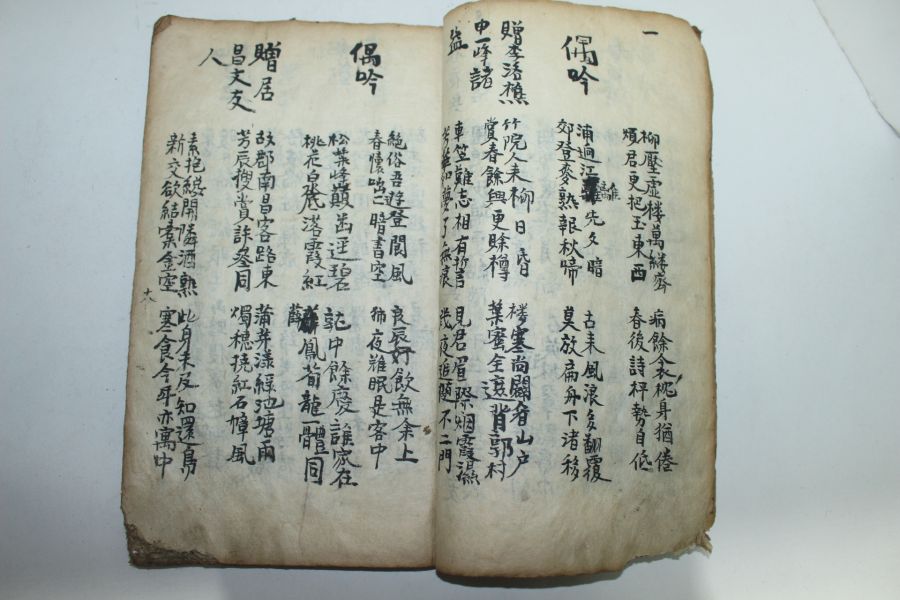 一
柳壓虛樓萬縷齊 病餘衾枕身猶倦
煩君更把玉東西 春後詩枰勢自低
偶吟
浦迥江 先夕暗 古來風浪多翻覆
郊登麥熟報秋啼 莫放扁舟下渚移
贈李洛樵
申一峰諸
益
竹院人來柳日昏 樓塞尚闢看山戶
賞春餘興更賒樽 葉蜜全遮背郭村
車笠難忘相有誓 見君眉際烟霞濕
夢了無痕 幾夜追隨不二門
偶吟
絶俗吾遊登閬風 良辰好飲無余上
春懷咄二暗書空 獅夜難眠是客中
松葉峰巔菡 逕碧 乾中餘慶誰家在
桃花白 底落霞紅 薛鳳荀龍一體同
贈居
昌文友
人
故郡南昌客路東 蒲芽漾綠池塘雨
芳辰 賞許參同 燭穗撓紅石幢風
素抱纔開隣酒熟 此身未反知還鳥
新交欲結案金空 寒食今年亦寓中
十八